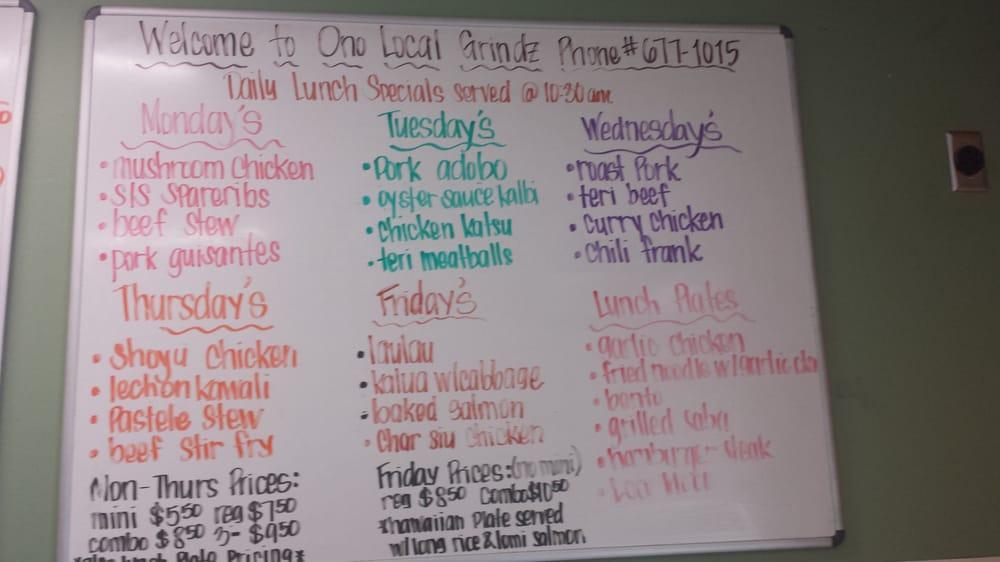 Welcome to Ono Local Grindz Phone# 677-1015
Daily Lunch Specials served @ 10:30 am
Monday's
• mushroom chicken
• S/S Spareribs
• beef stew
• pork guisantes
Tuesday's
• Pork adobo
• oyster sauce kalbi
• chicken katsu
• teri meatballs
Wednesday's
• roast Pork
• teri beef
• curry chicken
• chili frank
Thursday's
• Shoyu chicken
• lechon kawali
• Pastele Stew
• beef stir fry
Friday's
• laulau
• kalua w/cabbage
• baked salmon
• char siu chicken
Lunch Plates
• garlic chicken
• fried noodle w/garlic
• bento
• grilled saba
• hamburger steak
Mon-Thurs Prices:
mini $5.50 reg $7.50
combo $8.50 3- $9.50
Plate Pricing*
Friday Prices: (no mini)
reg $8.50 Combo $10.50
*hawaiian Plate served
w/long rice & lomi salmon